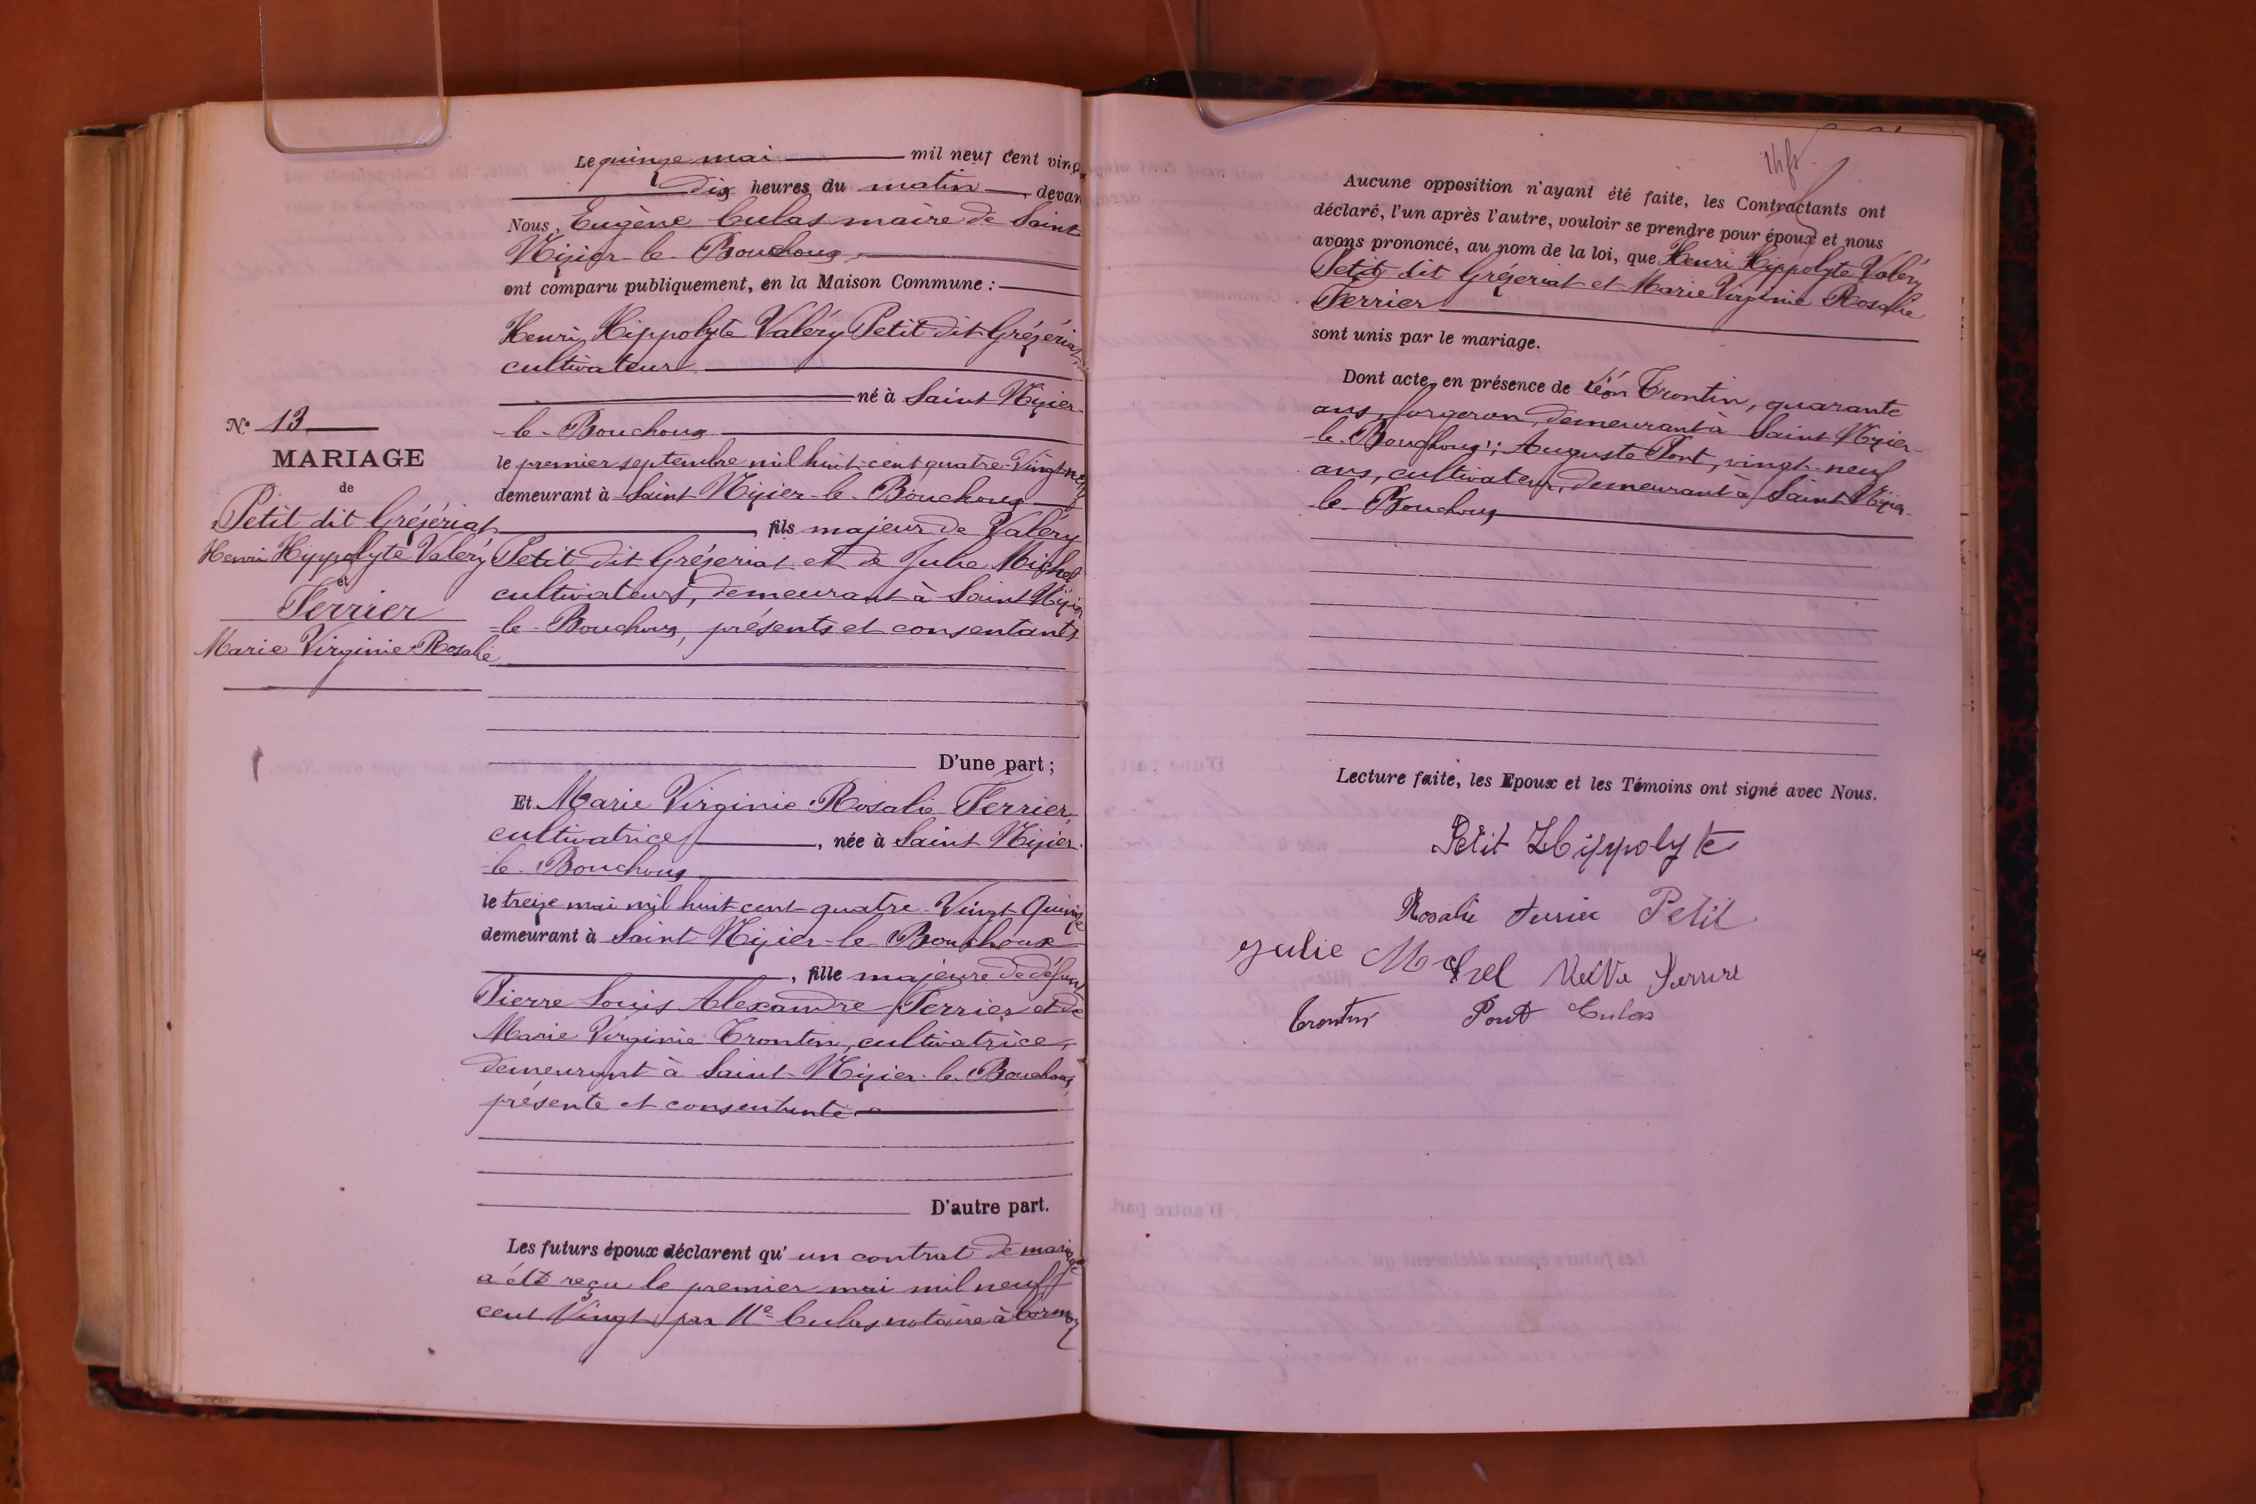 Le quinze mai mil neuf cent vingt
dix heures du matin, devant
Nous, Eugène Culas maire de Saint
Nizier-le-Bouchoux,
ont comparu publiquement, en la Maison Commune :
Henri Hippolyte Valéry Petit dit Gréjériat,
cultivateur
né à Saint Nizier-
-le-Bouchoux
le premier septembre mil huit-cent quatre-Vingt neuf
demeurant à Saint Nizier-le-Bouchoux
fils majeur de Valéry
Petit dit Gréjeriat et de Julie Michel
cultivateurs, demeurant à Saint Nizier
-le-Bouchoux, présents et consentants
D'une part ;
N° 13
MARIAGE
de
Petit dit Gréjériat
Henri Hippolyte Valéry
et
Ferrier
Marie Virginie Rosalie
Et Marie Virginie Rosalie Ferrier,
cultivatrice, née à Saint Nizier-
-le-Bouchoux
le treize mai mil huit cent quatre-Vingt Quinze
demeurant à Saint Nizier-le-Bouchoux
, fille majeure de défunt
Pierre Louis Alexandre Ferrier et de
Marie Virginie Trontin, cultivatrice,
demeurant à Saint-Nizier-le-Bouchoux,
présente et consentante
D'autre part.
Les futurs époux déclarent qu'un contrat de mariage
a été reçu le premier mai mil neuf
cent Vingt par Me Culas notaire à Cormoz
Aucune opposition n'ayant été faite, les Contractants ont
déclaré, l'un après l'autre, vouloir se prendre pour époux et nous
avons prononcé, au nom de la loi, que Henri Hippolyte Valéry
Petit dit Gréjeriat et Marie Virginie Rosalie
Ferrier
sont unis par le mariage.
Dont acte, en présence de Léon Trontin, quarante
ans, forgeron, demeurant à Saint Nizier-
-le-Bouchoux ; Auguste Pont, vingt-neuf
ans, cultivateur, demeurant à Saint Nizier-
-le-Bouchoux
Lecture faite, les Epoux et les Témoins ont signé avec Nous.
Petit Hippolyte
Rosalie Ferrier Petit
Julie Michel Ferrier
Trontin Pont Culas